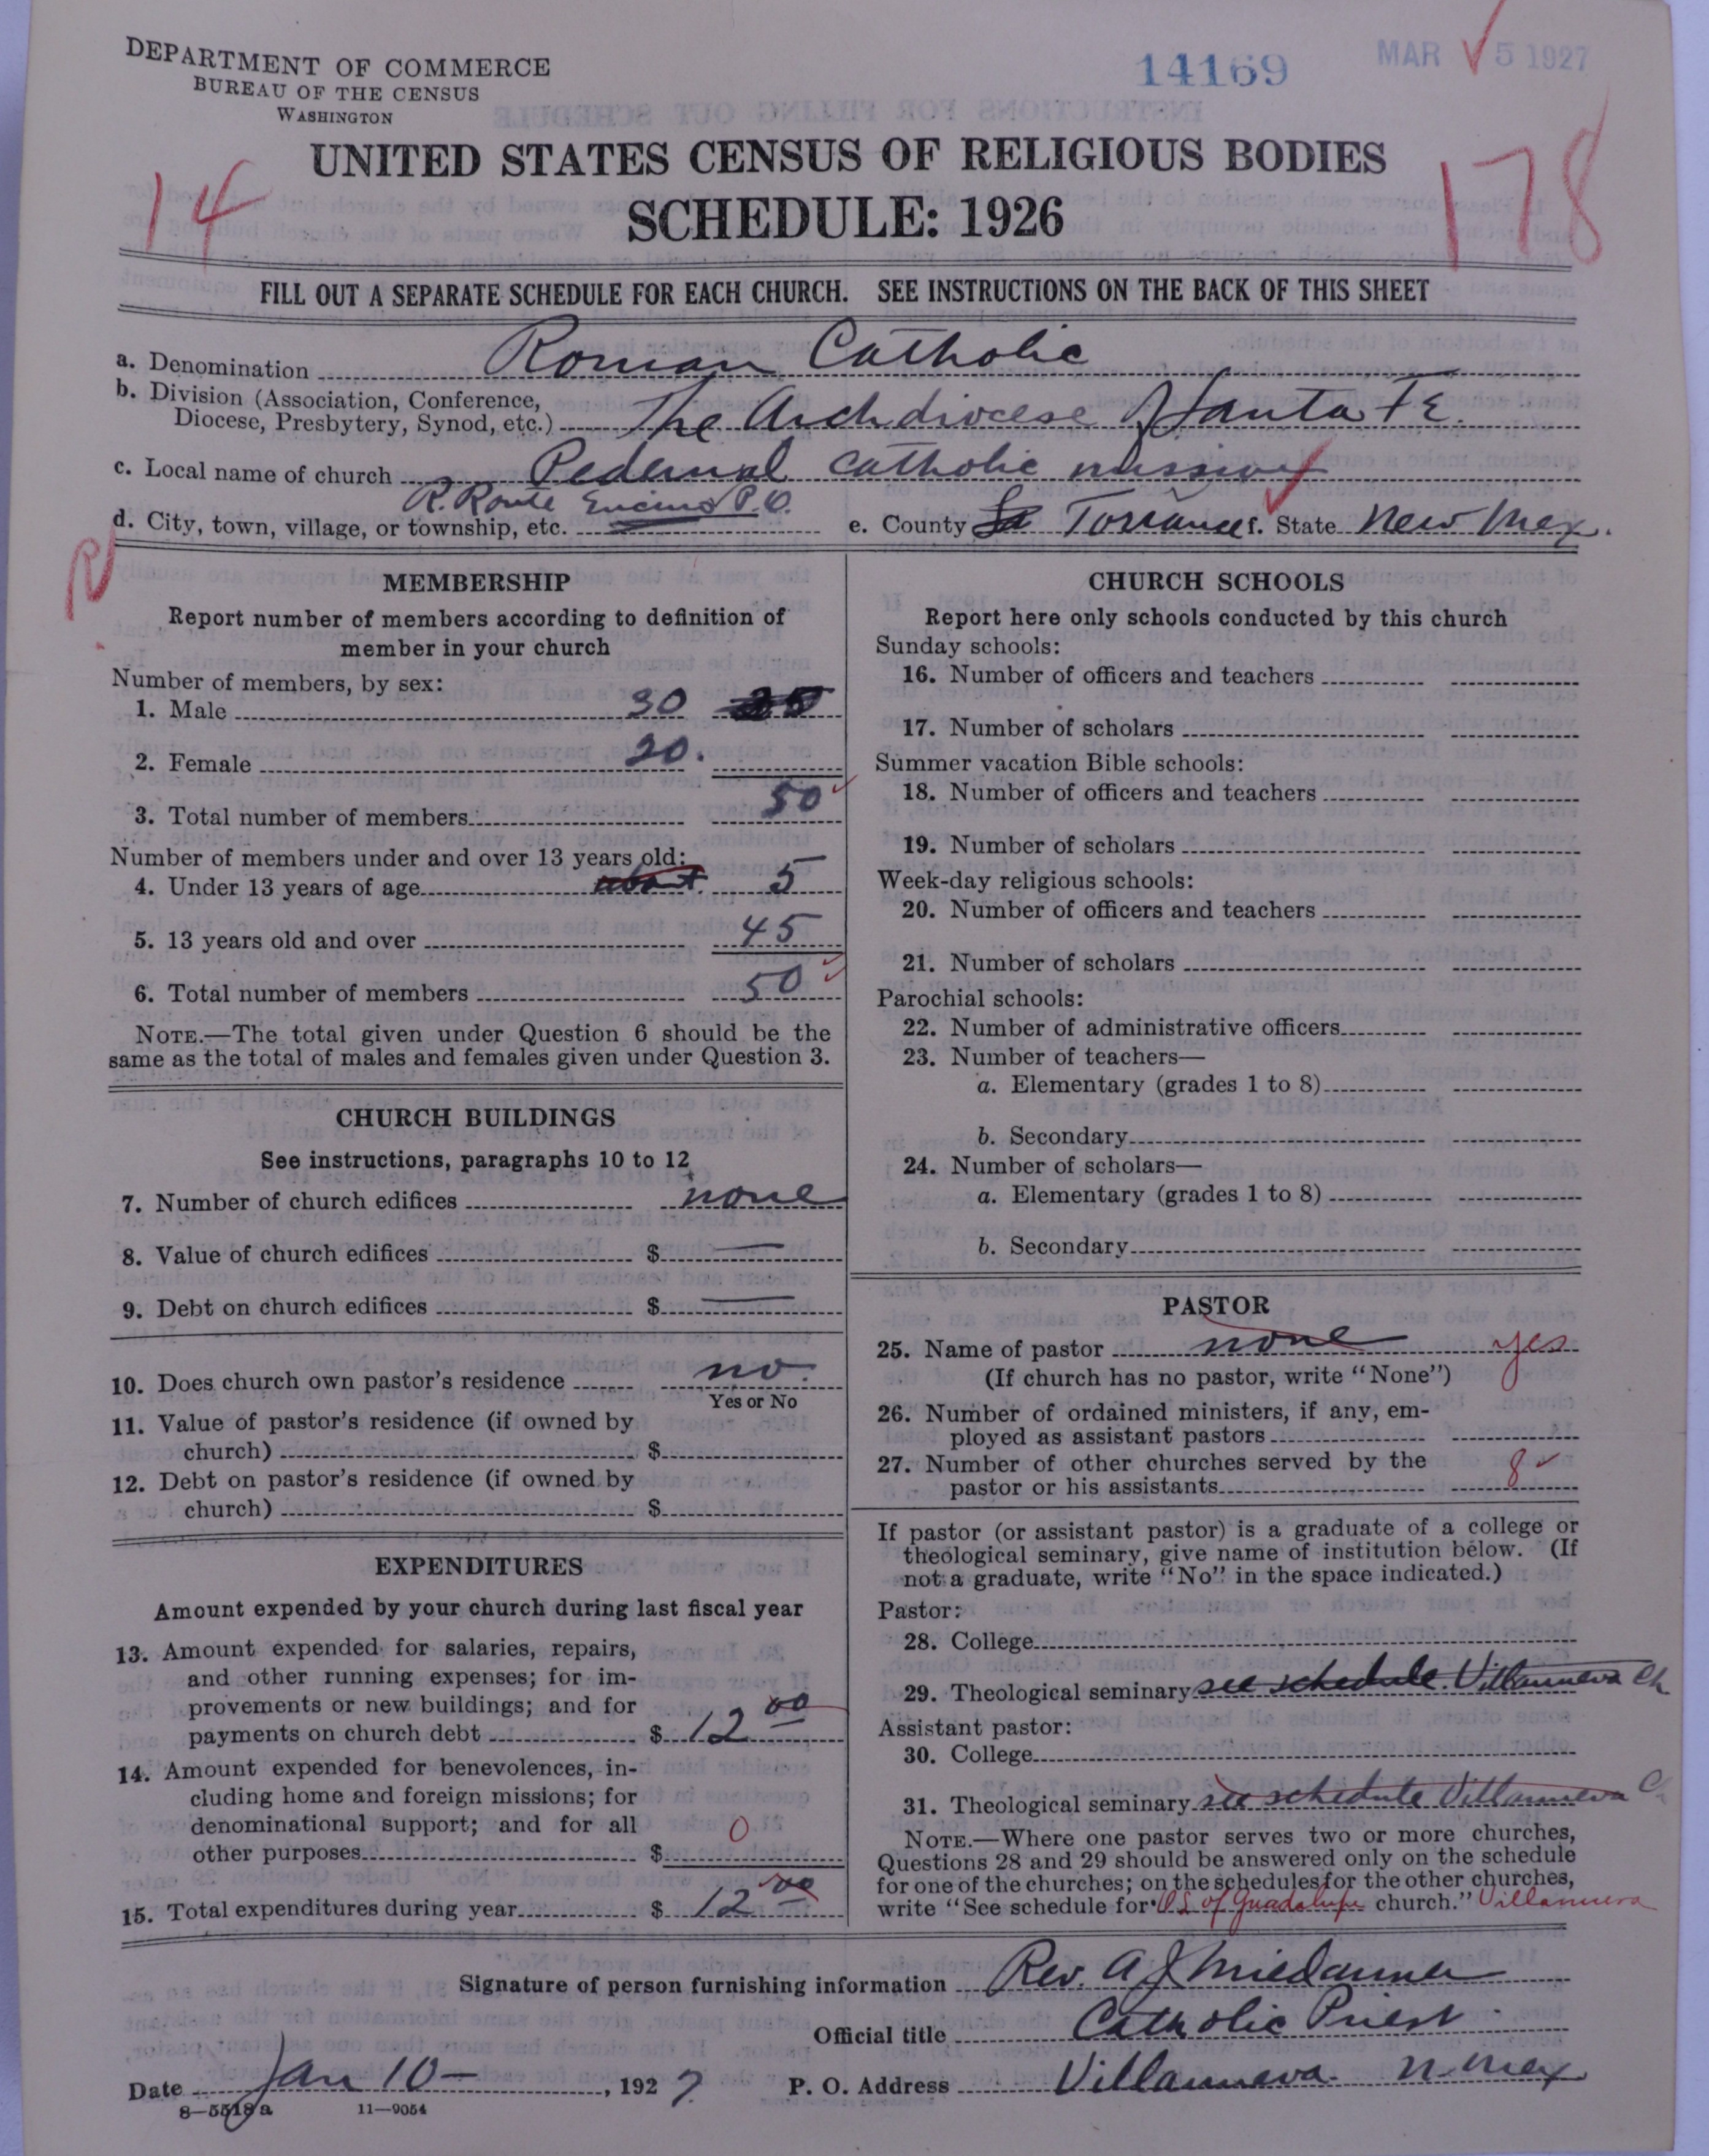 DEPARTMENT OF COMMERCE
BUREAU OF THE CENSUS
WASHINGTON
14169
MAR 5 1927
UNITED STATES CENSUS OF RELIGIOUS BODIES
SCHEDULE: 1926
14
178
FILL OUT A SEPARATE SCHEDULE FOR EACH CHURCH. SEE INSTRUCTIONS ON THE BACK OF THIS SHEET
a. Denomination Roman Catholic
b. Division (Association, Conference,
Diocese, Presbytery, Synod, etc.) The Archdiocese of Santa Fe.
c. Local name of church Pedernal catholic mission
R. Route Encino P.O.
d. City, town, village, or township, etc.
e. County Torrance f. State New Mex.
R
MEMBERSHIP
Report number of members according to definition of
member in your church
Number of members, by sex:
1. Male 30
2. Female 20.
3. Total number of members 50
Number of members under and over 13 years old:
4. Under 13 years of age about 5
5. 13 years old and over 45
6. Total number of members 50
NOTE.—The total given under Question 6 should be the
same as the total of males and females given under Question 3.
CHURCH BUILDINGS
See instructions, paragraphs 10 to 12
7. Number of church edifices none
8. Value of church edifices $ —
9. Debt on church edifices $ —
10. Does church own pastor's residence no.
Yes or No
11. Value of pastor's residence (if owned by
church) $
12. Debt on pastor's residence (if owned by
church) $
EXPENDITURES
Amount expended by your church during last fiscal year
13. Amount expended for salaries, repairs,
and other running expenses; for im-
provements or new buildings; and for
payments on church debt $ 12 00
14. Amount expended for benevolences, in-
cluding home and foreign missions; for
denominational support; and for all
other purposes $ 0
15. Total expenditures during year $ 12 00
CHURCH SCHOOLS
Report here only schools conducted by this church
Sunday schools:
16. Number of officers and teachers
17. Number of scholars
Summer vacation Bible schools:
18. Number of officers and teachers
19. Number of scholars
Week-day religious schools:
20. Number of officers and teachers
21. Number of scholars
Parochial schools:
22. Number of administrative officers
23. Number of teachers—
a. Elementary (grades 1 to 8)
b. Secondary
24. Number of scholars—
a. Elementary (grades 1 to 8)
b. Secondary
PASTOR
25. Name of pastor none yes
(If church has no pastor, write "None")
26. Number of ordained ministers, if any, em-
ployed as assistant pastors
27. Number of other churches served by the
pastor or his assistants 8
If pastor (or assistant pastor) is a graduate of a college or
theological seminary, give name of institution below. (If
not a graduate, write "No" in the space indicated.)
Pastor:
28. College
29. Theological seminary see schedule. Villanueva Ch
Assistant pastor:
30. College
31. Theological seminary see schedule Villanueva
NOTE.—Where one pastor serves two or more churches,
Questions 28 and 29 should be answered only on the schedule
for one of the churches; on the schedules for the other churches,
write "See schedule for O L of Guadalupe church." Villanueva
Signature of person furnishing information Rev. A J Miedanner
Official title Catholic Priest
Date Jan 10—, 1927. P. O. Address Villanueva. N. Mex.
8—5518a 11—9054